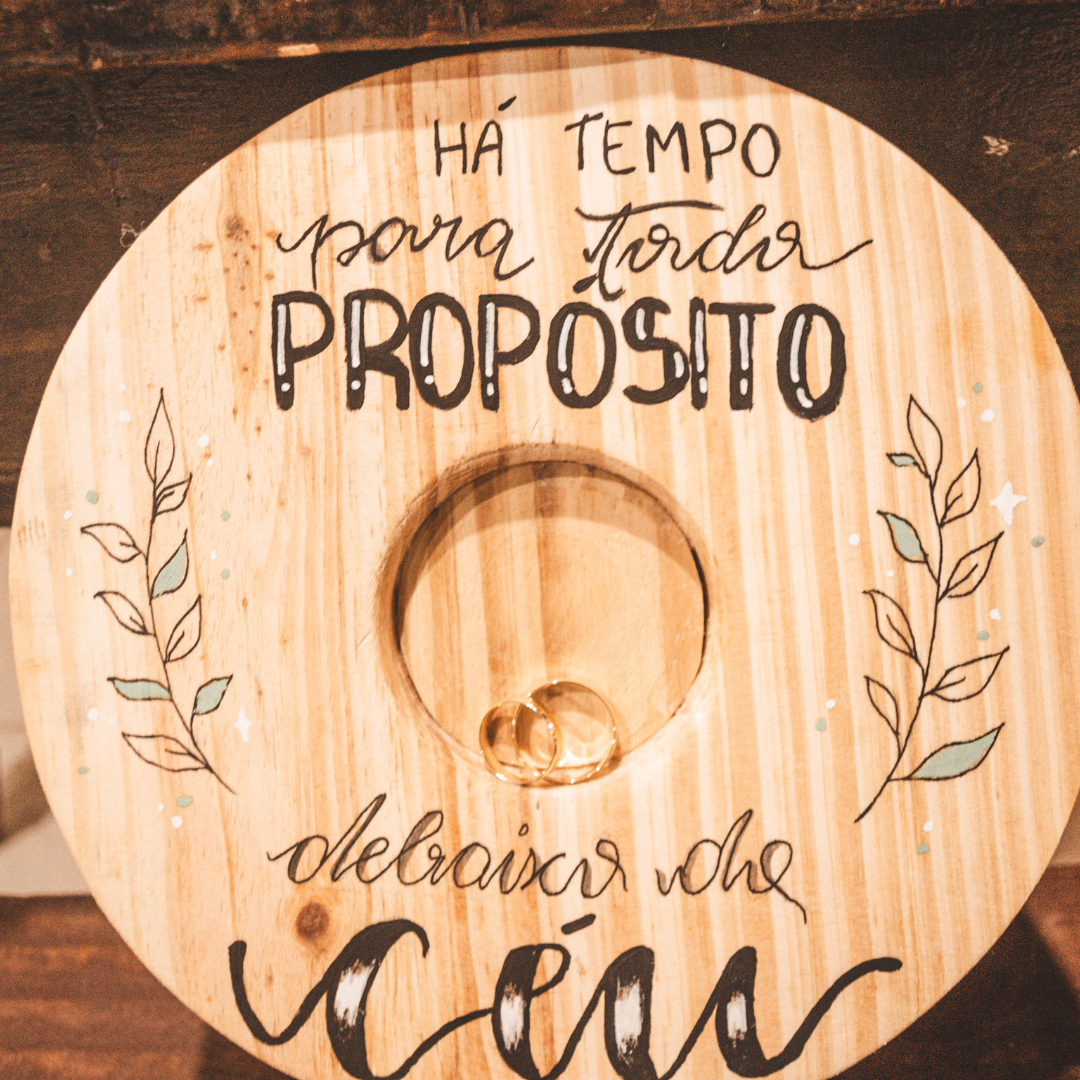 HÁ TEMPO
para todo
PROPÓSITO
debaixo do
céu